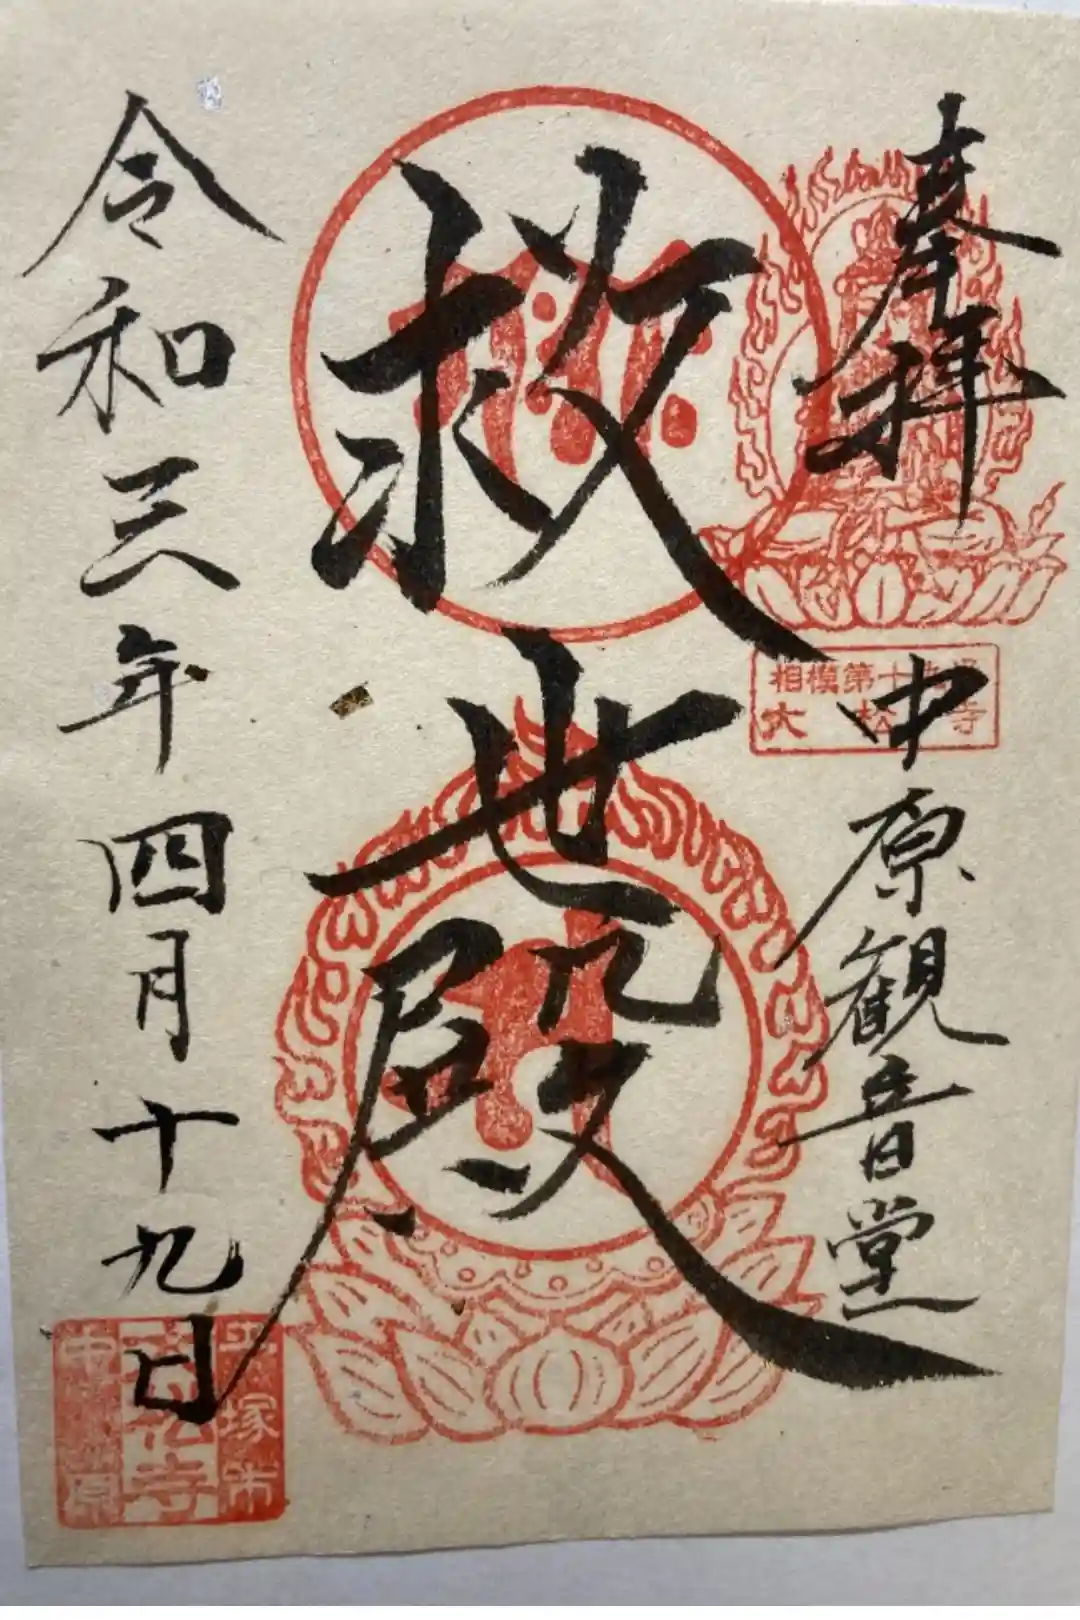 奉拝
中原観音堂
救世殿
令和三年四月十九日
相模第十
大松寺
平塚市
松寺
中原